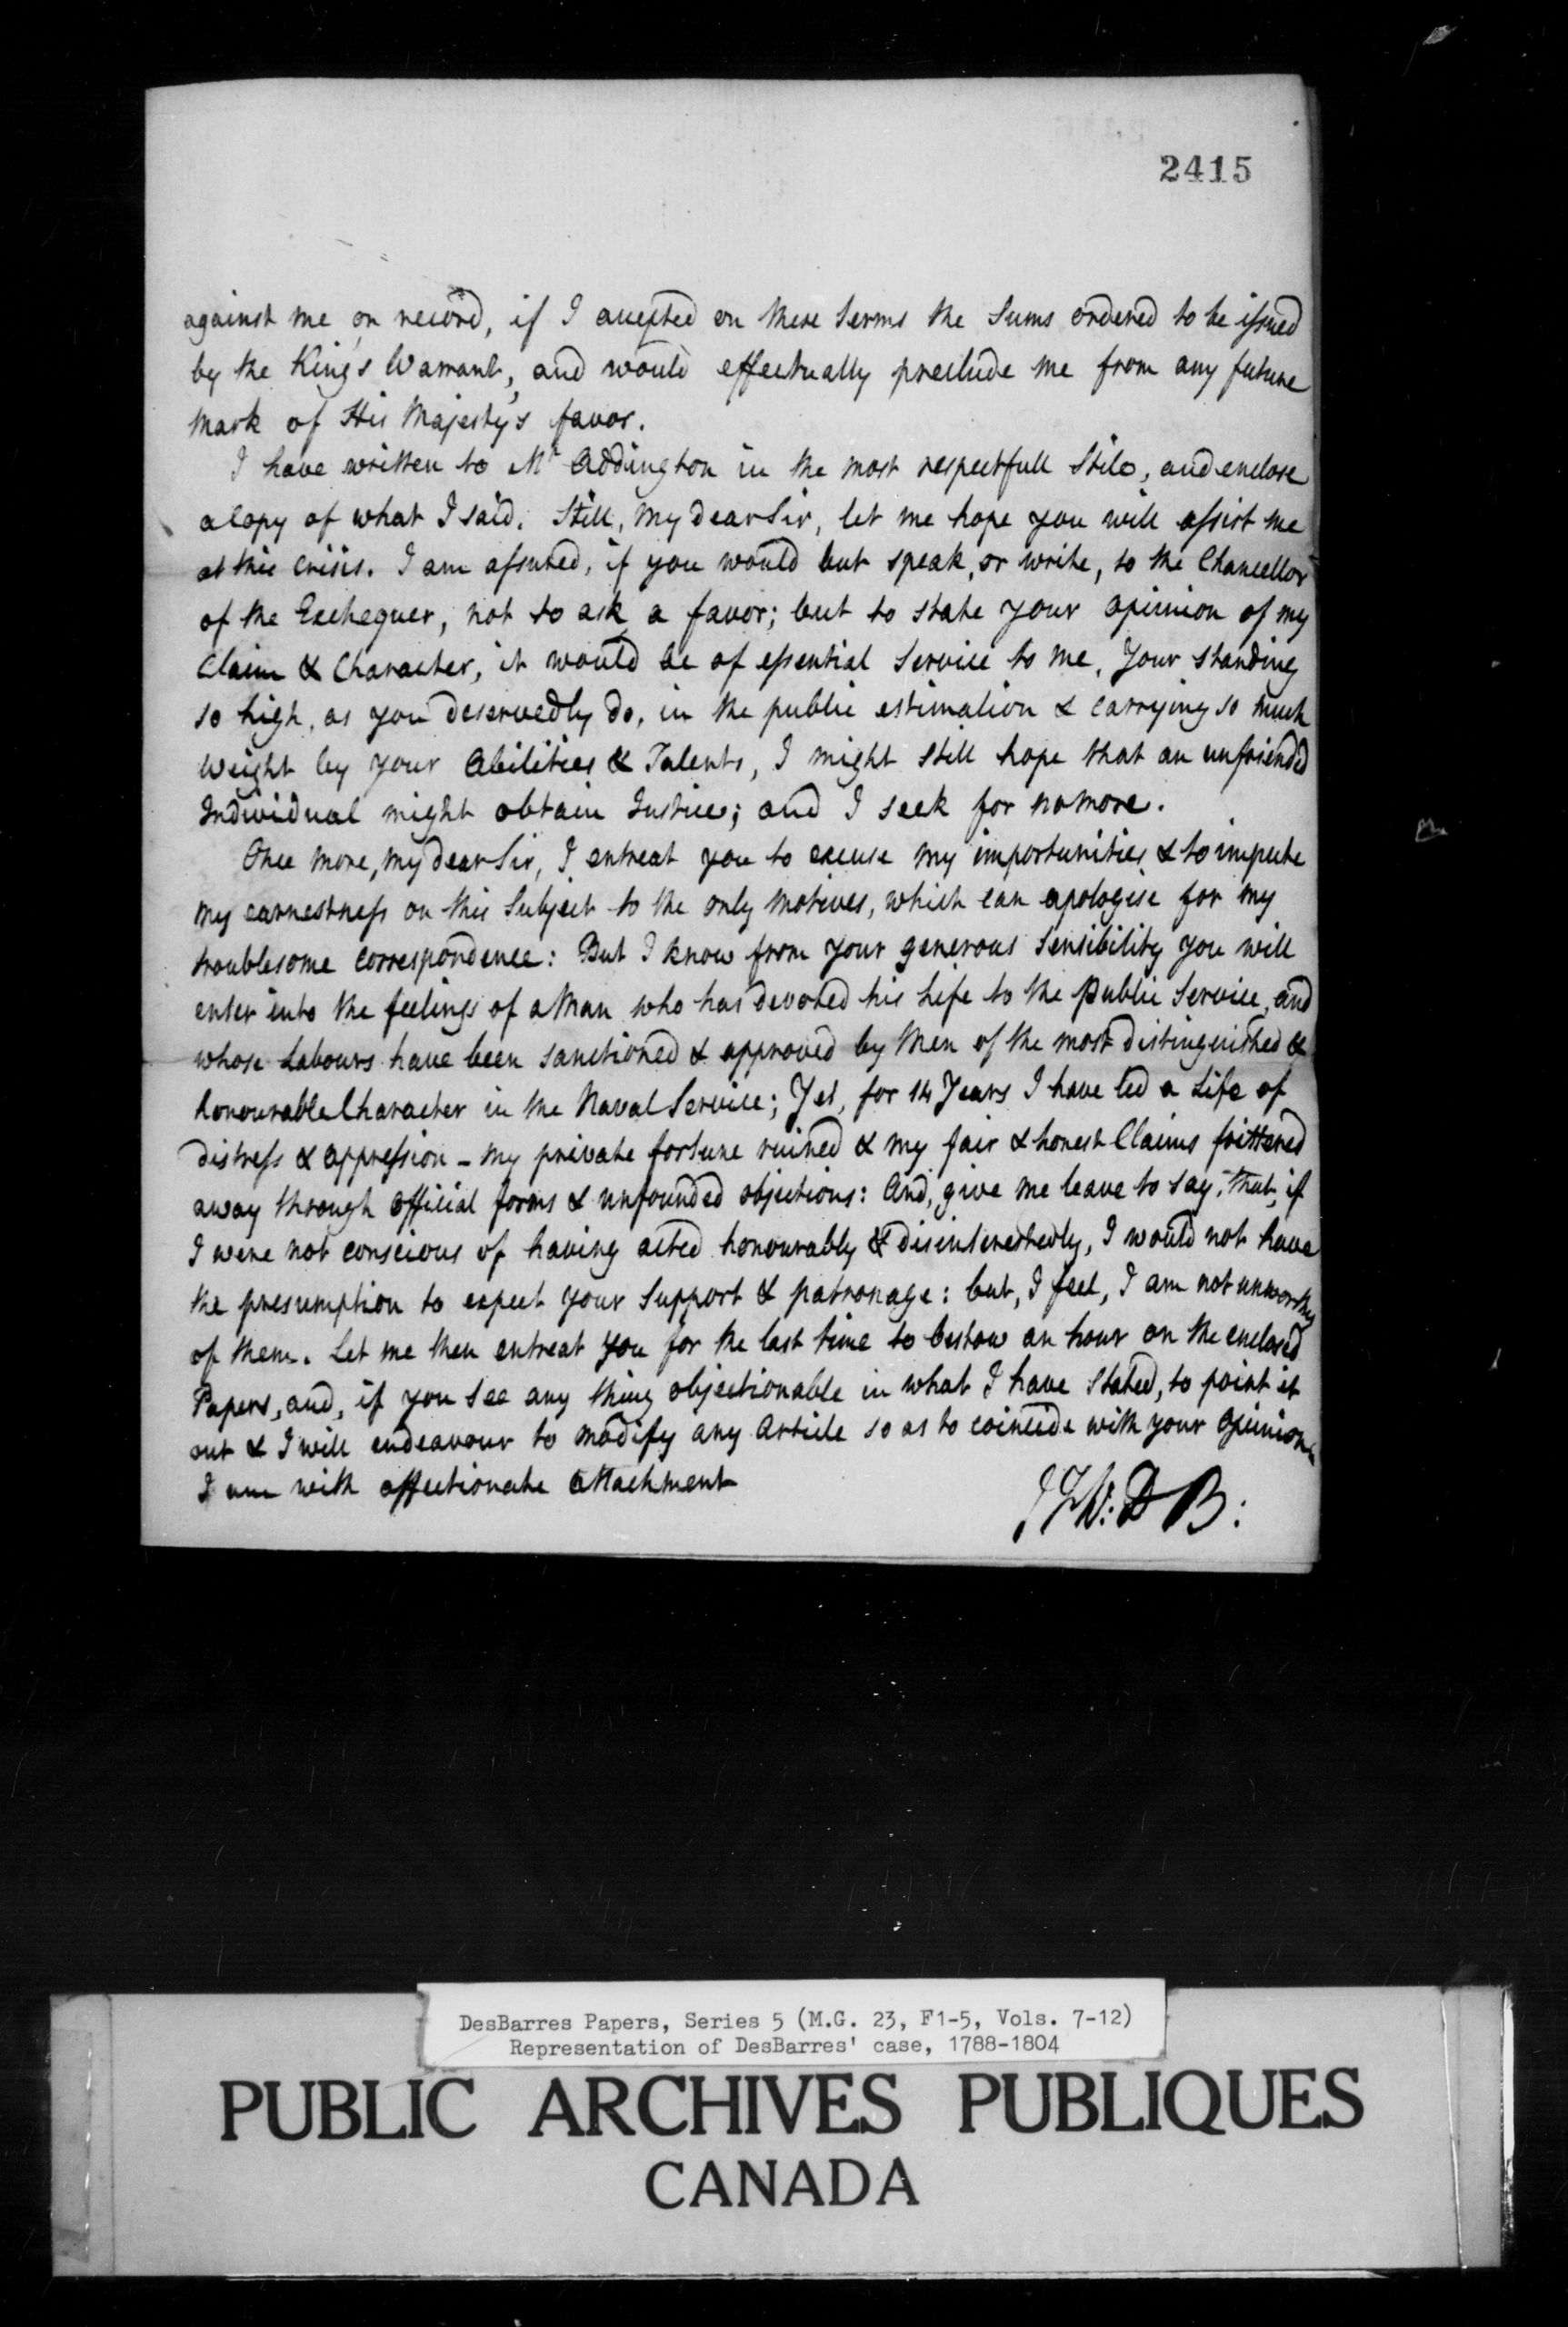 2415
against me on record, if I accepted on these terms the Sums ordered to be issued
by the King's Warrant, and would effectually preclude me from any future
Mark of His Majesty's favor.
I have written to Mr Addington in the most respectfull Stile, and enclose
a Copy of what I said. Still, My dear Sir, let me hope you will assist me
at this Crisis. I am assured, if you would but speak, or write, to the Chancellor
of the Exchequer, not to ask a favor; but to state your opinion of my
Claim & Character, it would be of essential Service to me, Your standing
so high, as you deservedly do, in the public estimation & carrying so much
Weight by your Abilities & Talents, I might still hope that an unfriended
Individual might obtain Justice; and I seek for no more.
Once more, my dear Sir, I entreat you to excuse my importunities & to impute
my earnestness on this Subject to the only motives, which can apologise for my
troublesome Correspondence: But I know from your generous Sensibility you will
enter into the feelings of a Man who has devoted his Life to the Public Service, and
whose Labours have been sanctioned & approved by Men of the most distinguished &
honourable Character in the Naval Service; Yet, for 14 Years I have led a Life of
distress & oppression - my private fortune ruined & my fair & honest Claims frittered
away through Official forms & unfounded objections: And, give me leave to say, that, if
I were not conscious of having acted honourably & disinterestedly, I would not have
the presumption to expect your Support & patronage: but, I feel, I am not unworthy
of them. Let me then entreat you for the last time to bestow an hour on the enclosed
Papers, and, if you see any thing objectionable in what I have Stated, to point it
out & I will endeavour to modify any Article so as to coincide with your Opinion
I am with affectionate Attachment
J F W: D B:
DesBarres Papers, Series 5 (M.G. 23, F1-5, Vols. 7-12)
Representation of DesBarres' case, 1788-1804
PUBLIC ARCHIVES PUBLIQUES
CANADA